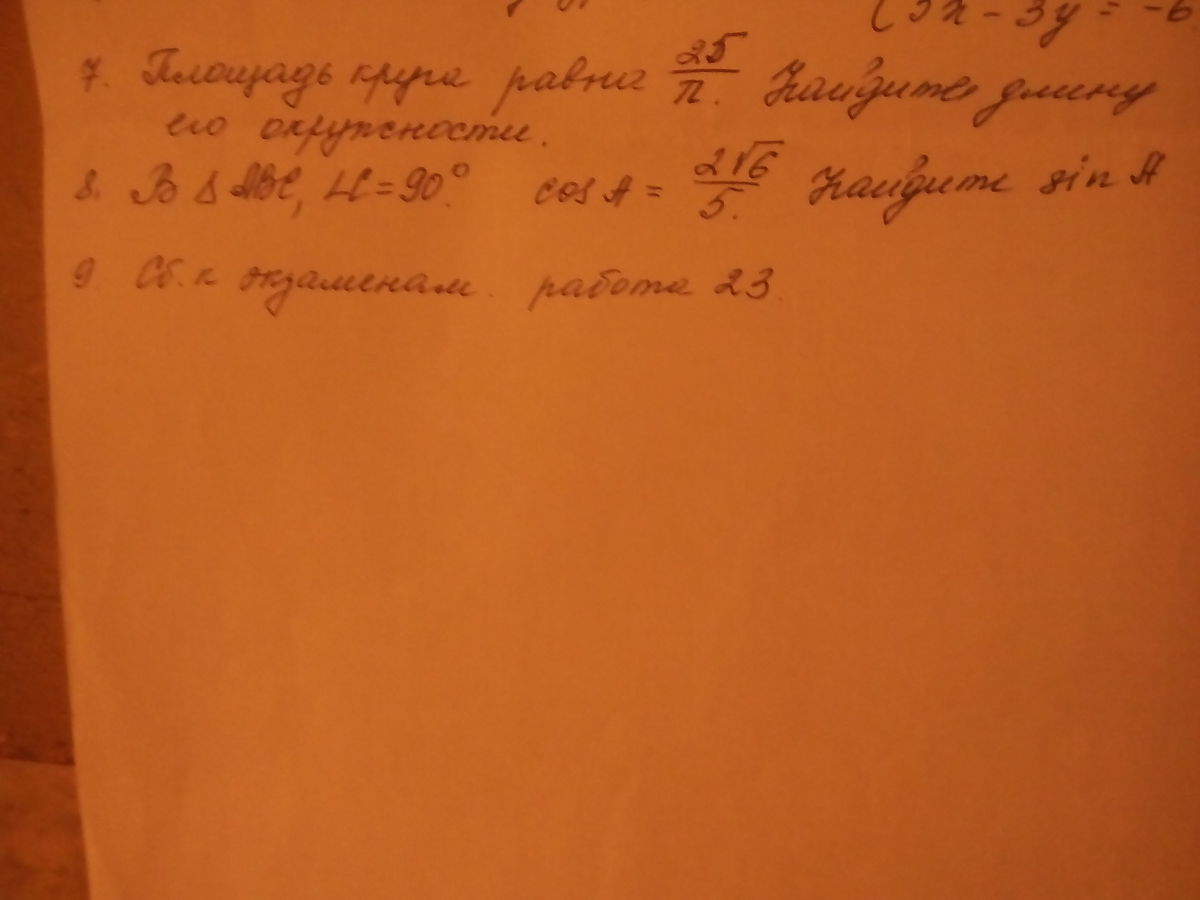 (5x - 3y = -6
7. Площадь круга равна 25/π. Найдите длину
его окружности.
8. В ΔABC, ∠C = 90°. cos A = 2√6/5. Найдите sin A
9. Сб. к экзаменам. работа 23.